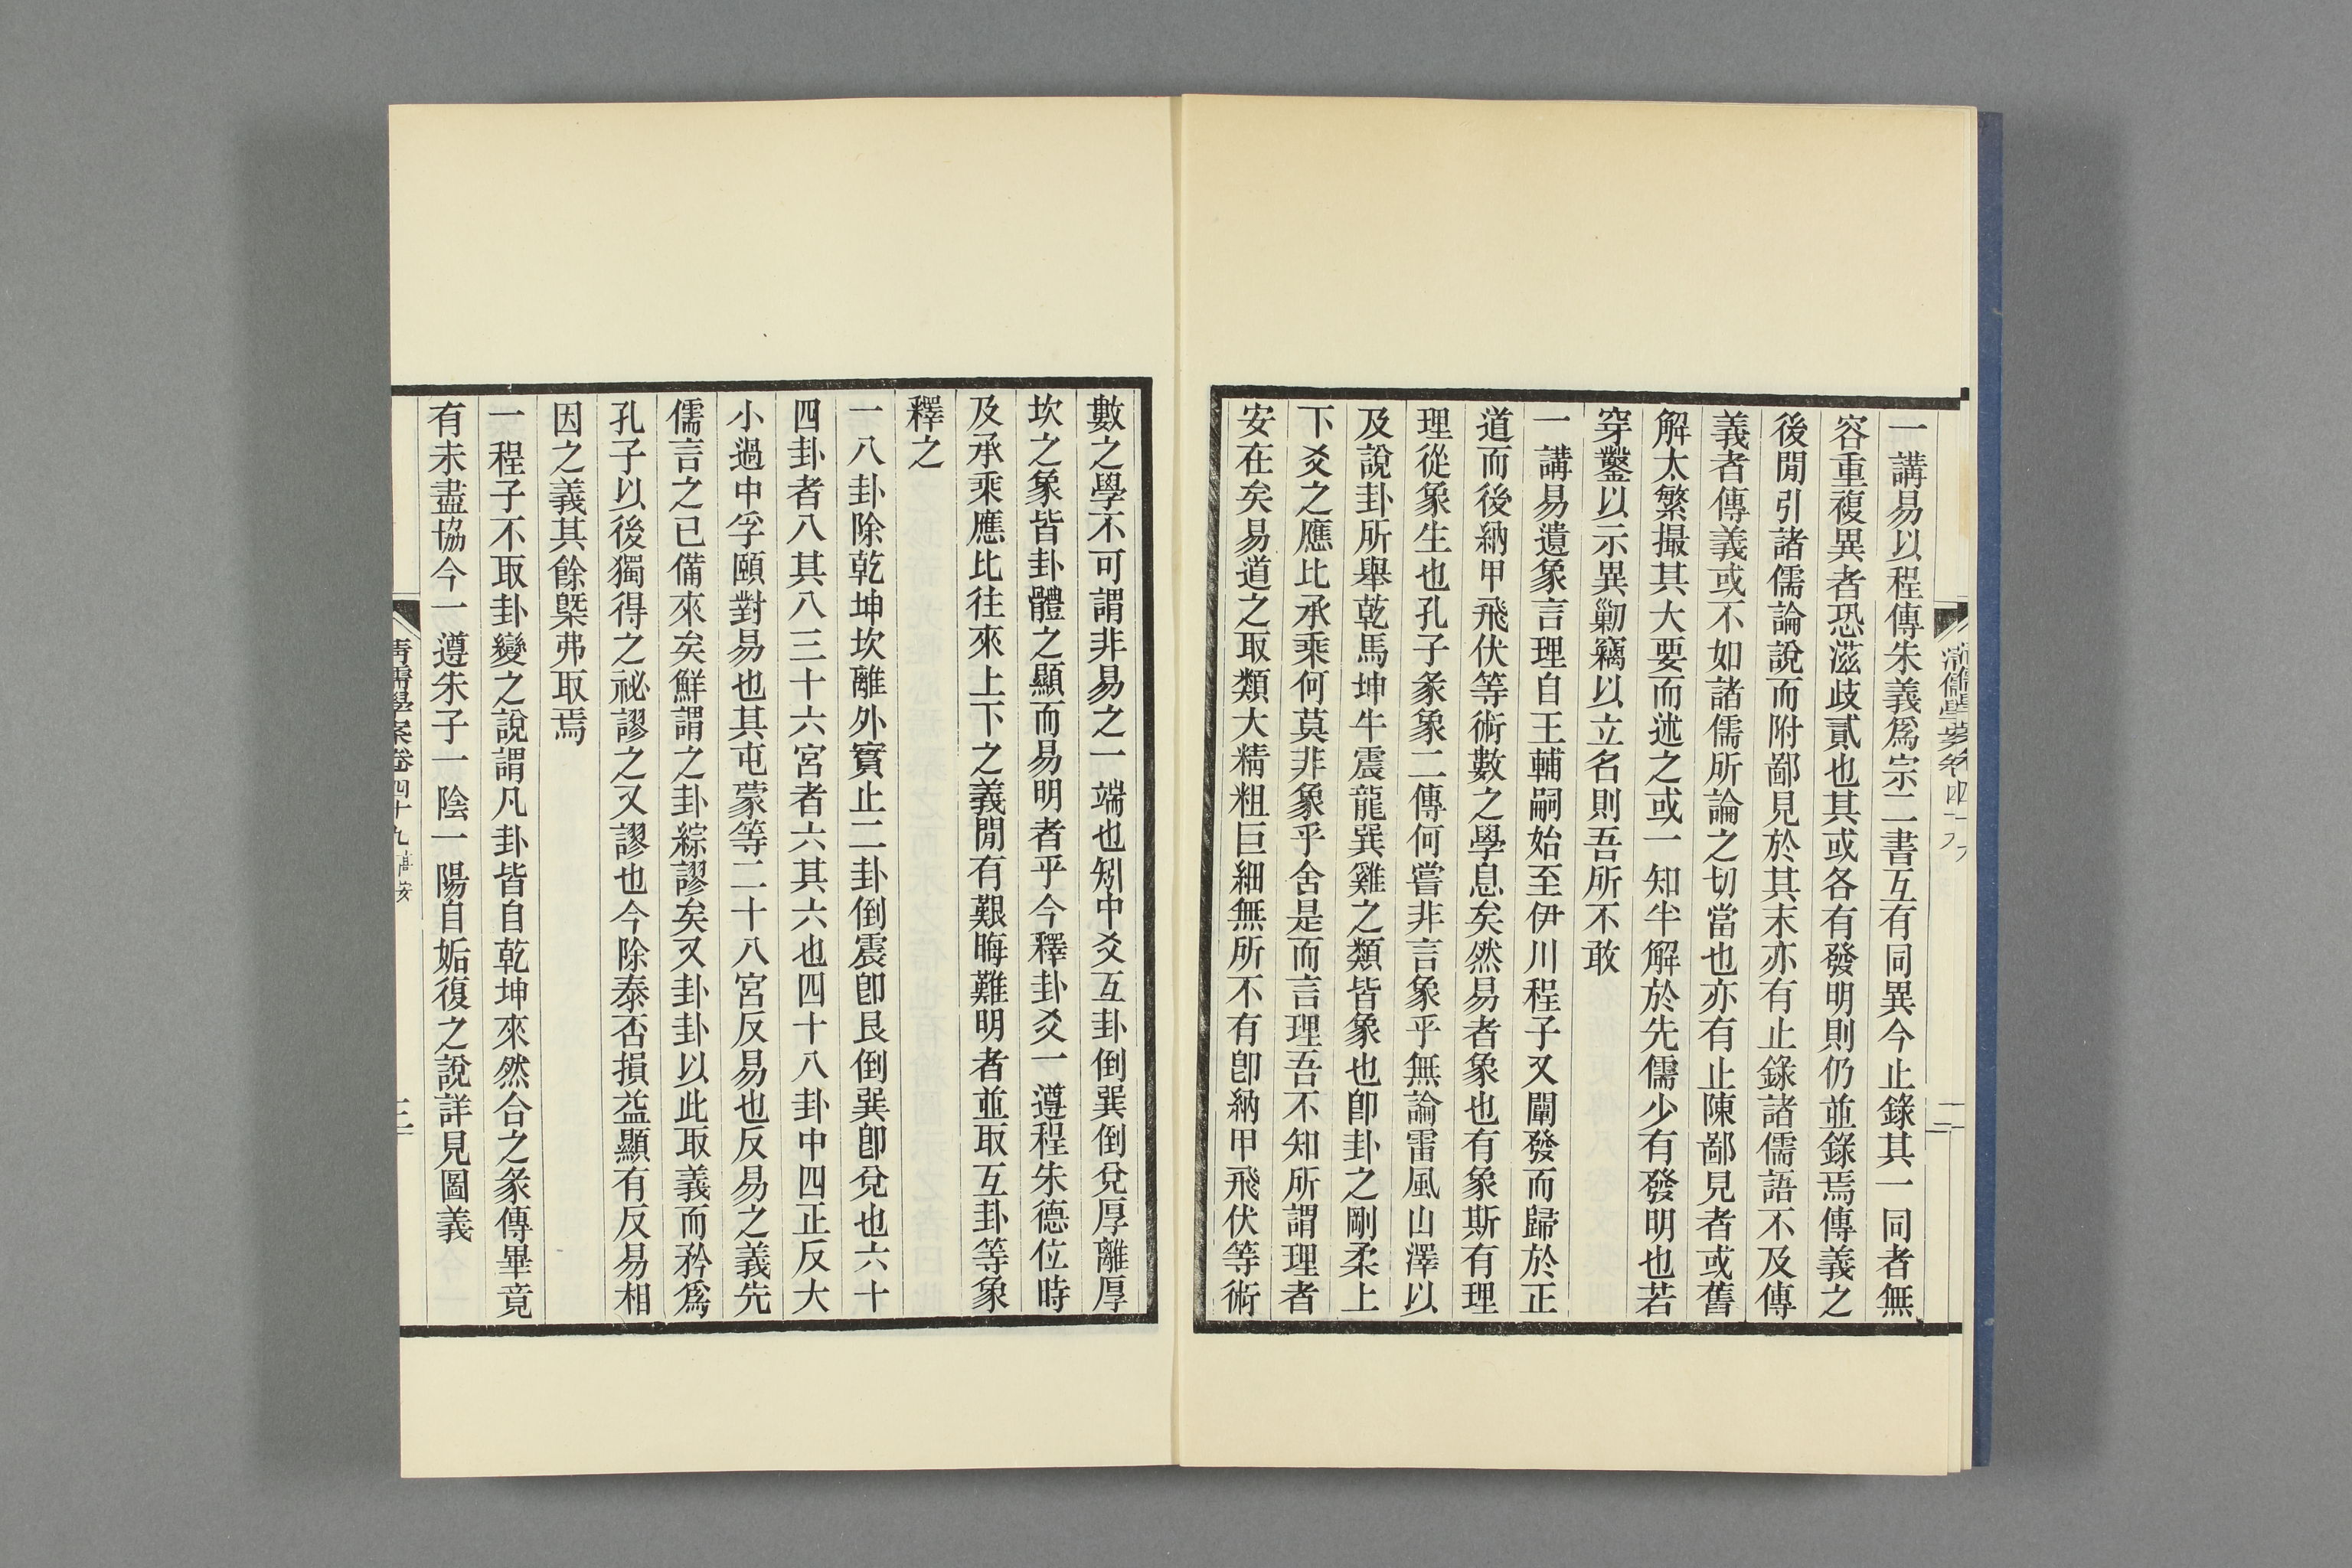 一講易以程傳朱義爲宗二書互有同異今止錄其一同者無
容重複異者恐滋歧貳也其或各有發明則仍並錄焉傳義之
後閒引諸儒論說而附鄙見於其末亦有止錄諸儒語不及傳
義者傳義或不如諸儒所論之切當也亦有止陳鄙見者或舊
解太繁撮其大要而述之或一知半解於先儒少有發明也若
穿鑿以示異勦竊以立名則吾所不敢
一講易遺象言理自王輔嗣始至伊川程子又闡發而歸於正
道而後納甲飛伏等術數之學息矣然易者象也有象斯有理
理從象生也孔子彖象二傳何嘗非言象乎無論雷風山澤以
及說卦所舉乾馬坤牛震龍巽雞之類皆象也卽卦之剛柔上
下爻之應比承乘何莫非象乎舍是而言理吾不知所謂理者
安在矣易道之取類大精粗巨細無所不有卽納甲飛伏等術
數之學不可謂非易之一端也矧中爻互卦倒巽倒兌厚離厚
坎之象皆卦體之顯而易明者乎今釋卦爻一遵程朱德位時
及承乘應比往來上下之義閒有艱晦難明者並取互卦等象
釋之
一八卦除乾坤坎離外實止二卦倒震卽艮倒巽卽兌也六十
四卦者八其八三十六宮者六其六也四十八卦中四正反大
小過中孚頤對易也其屯蒙等二十八宮反易也反易之義先
儒言之已備來矣鮮謂之卦綜謬矣又卦卦以此取義而矜爲
孔子以後獨得之祕謬之又謬也今除泰否損益顯有反易相
因之義其餘槩弗取焉
一程子不取卦變之說謂凡卦皆自乾坤來然合之彖傳畢竟
有未盡協今一遵朱子一陰一陽自姤復之說詳見圖義
清儒學案卷四十九 高安
三